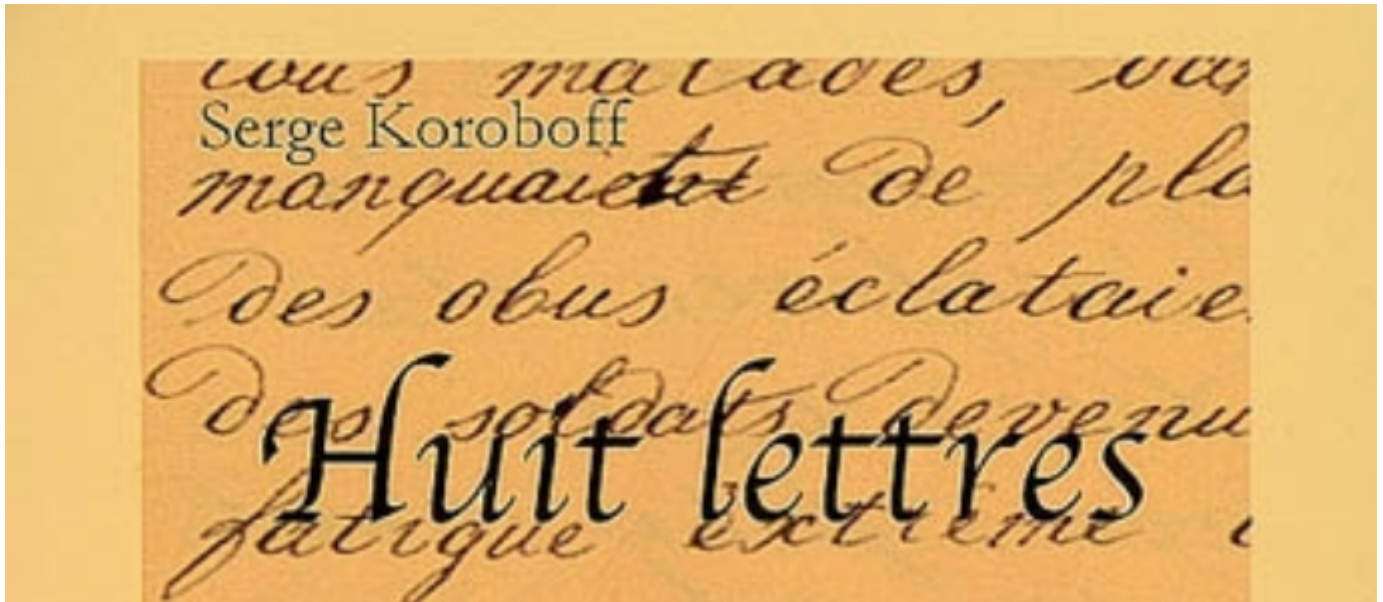 tous malades,
Serge Koroboff
manquaient de
des obus éclataie
des soldats devenu
Huit lettres
fatigue extrême